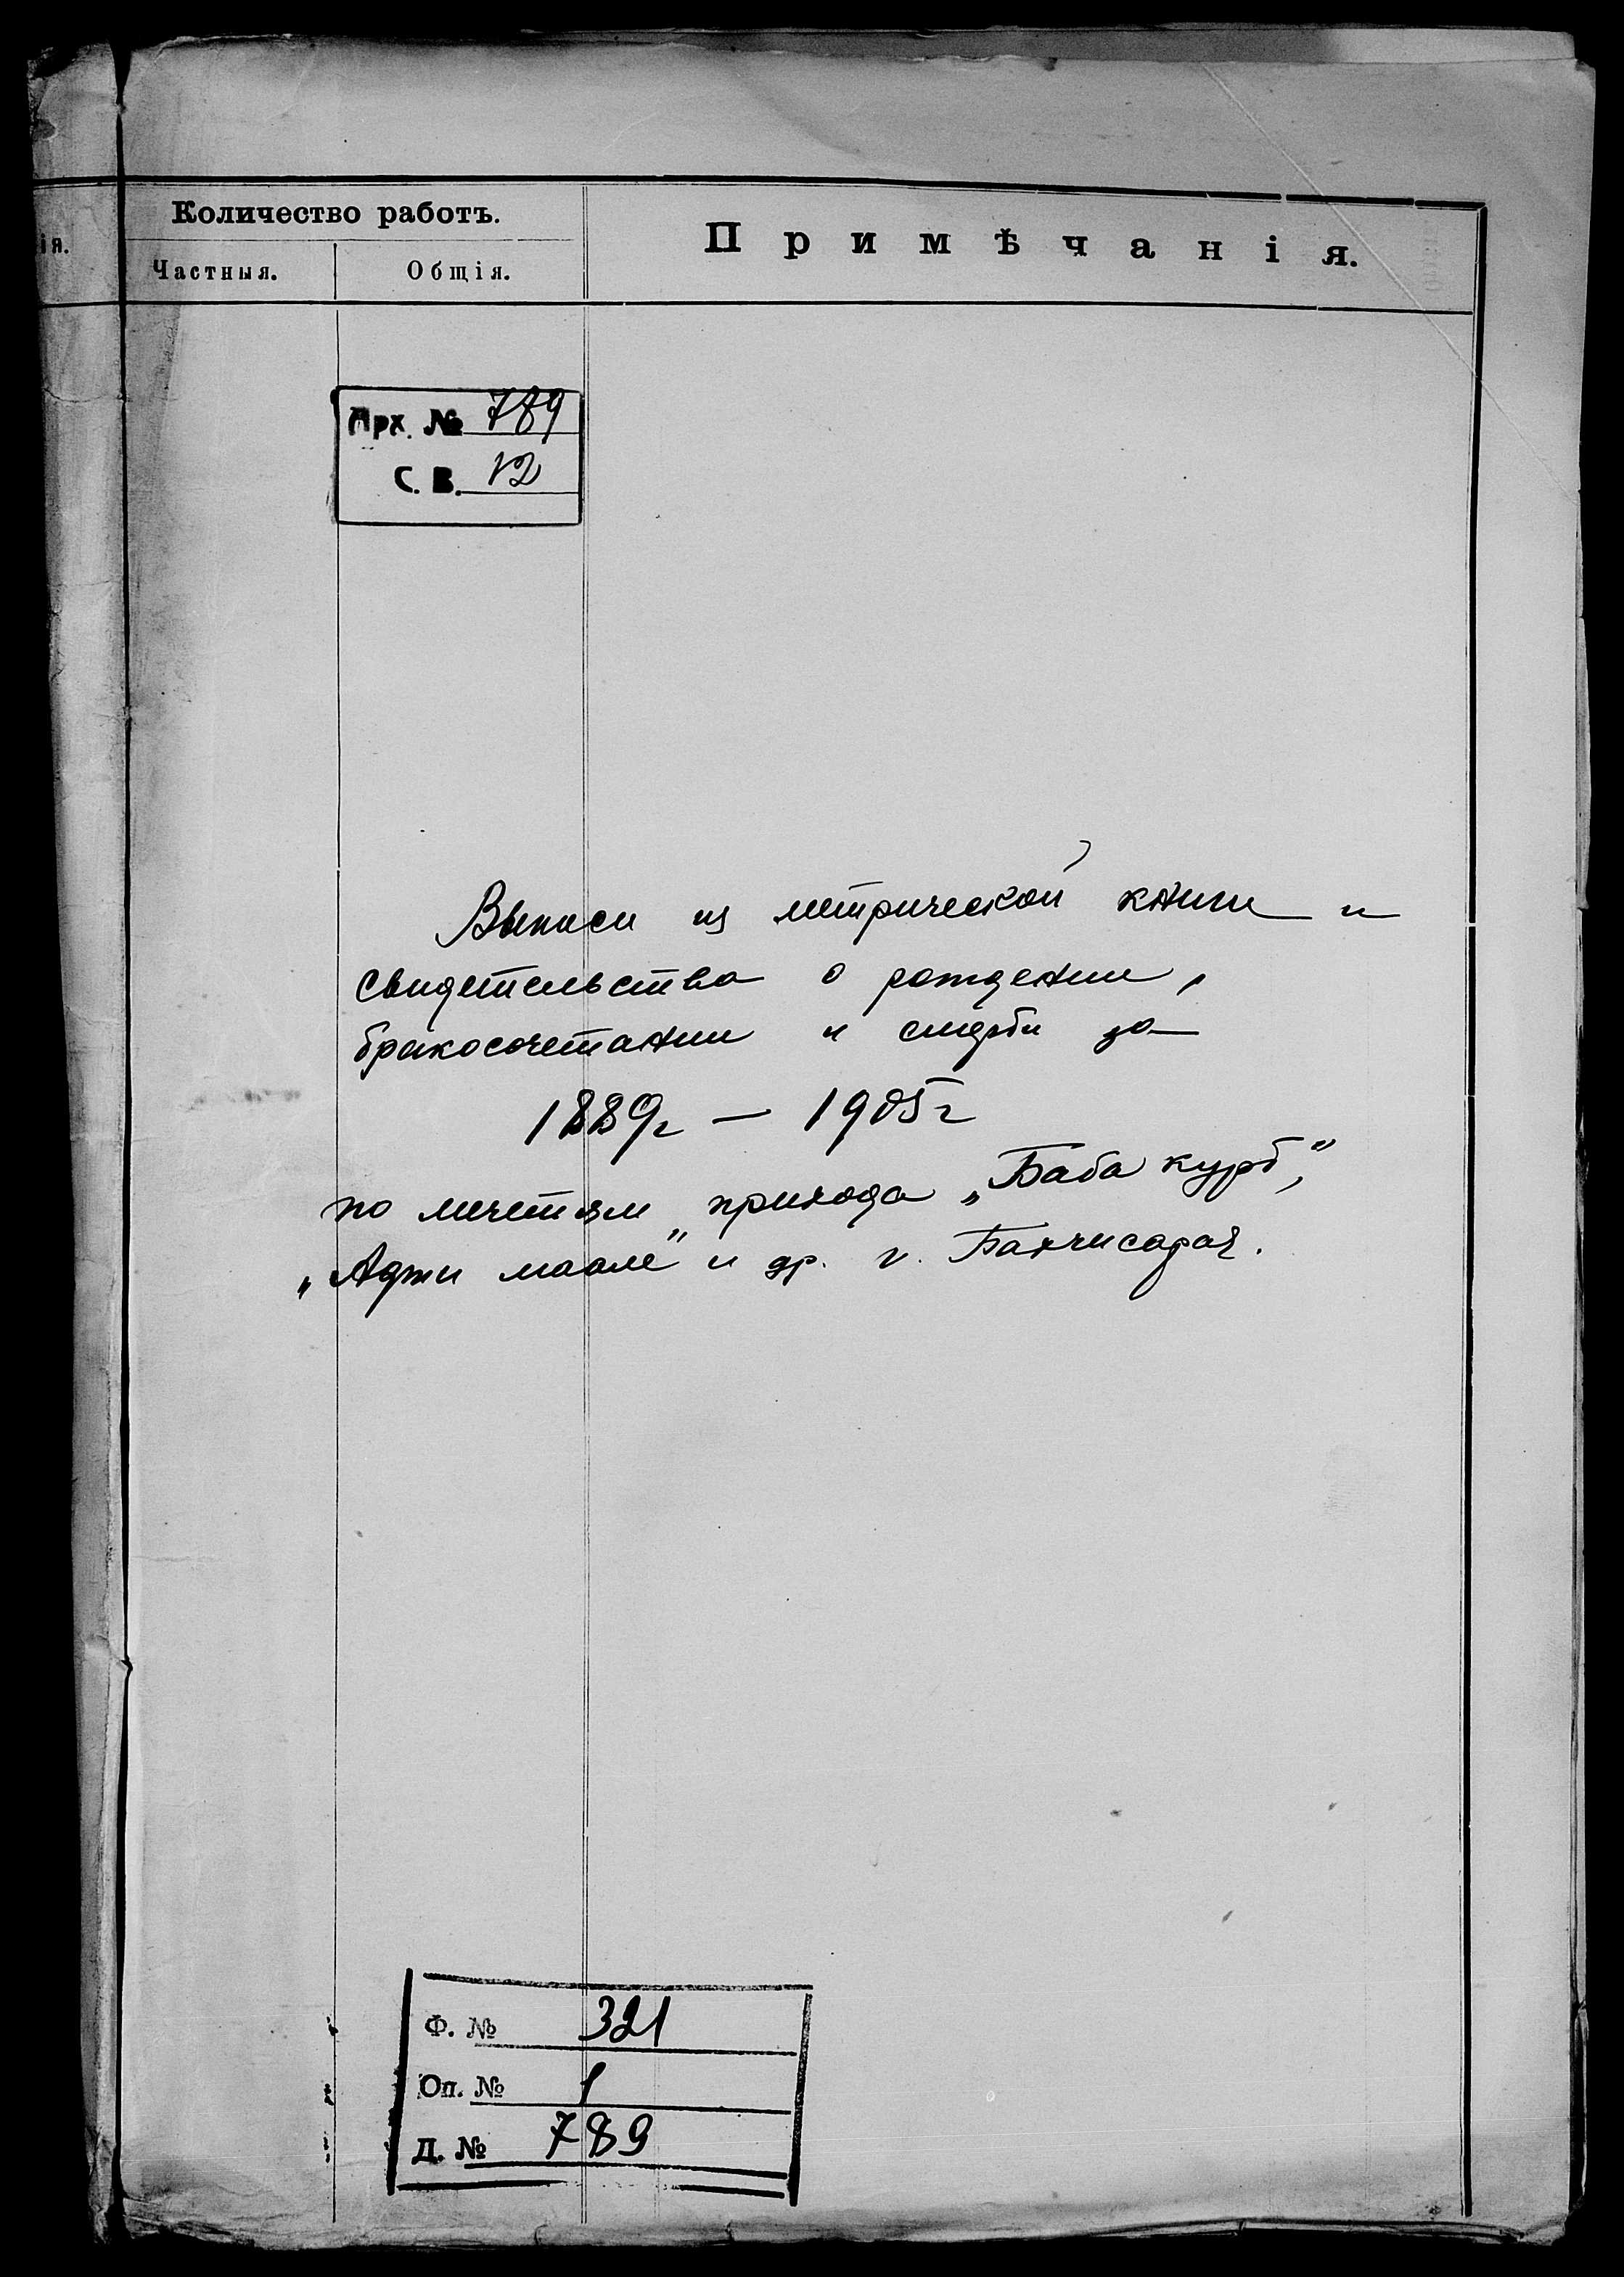 Количество работъ.
ія.
Частныя.
Общія.
Примѣчанія.
Арх. № 789
С. В. 12
Выписи из метрической книги и
свидетельства о рождении,
бракосочетании и смерти за
1889г — 1905г
по мечетям прихода „Баба курд“,
„Аджи маале“ и др. г. Бахчисарая.
Ф. № 321
Оп. № 1
Д. № 789